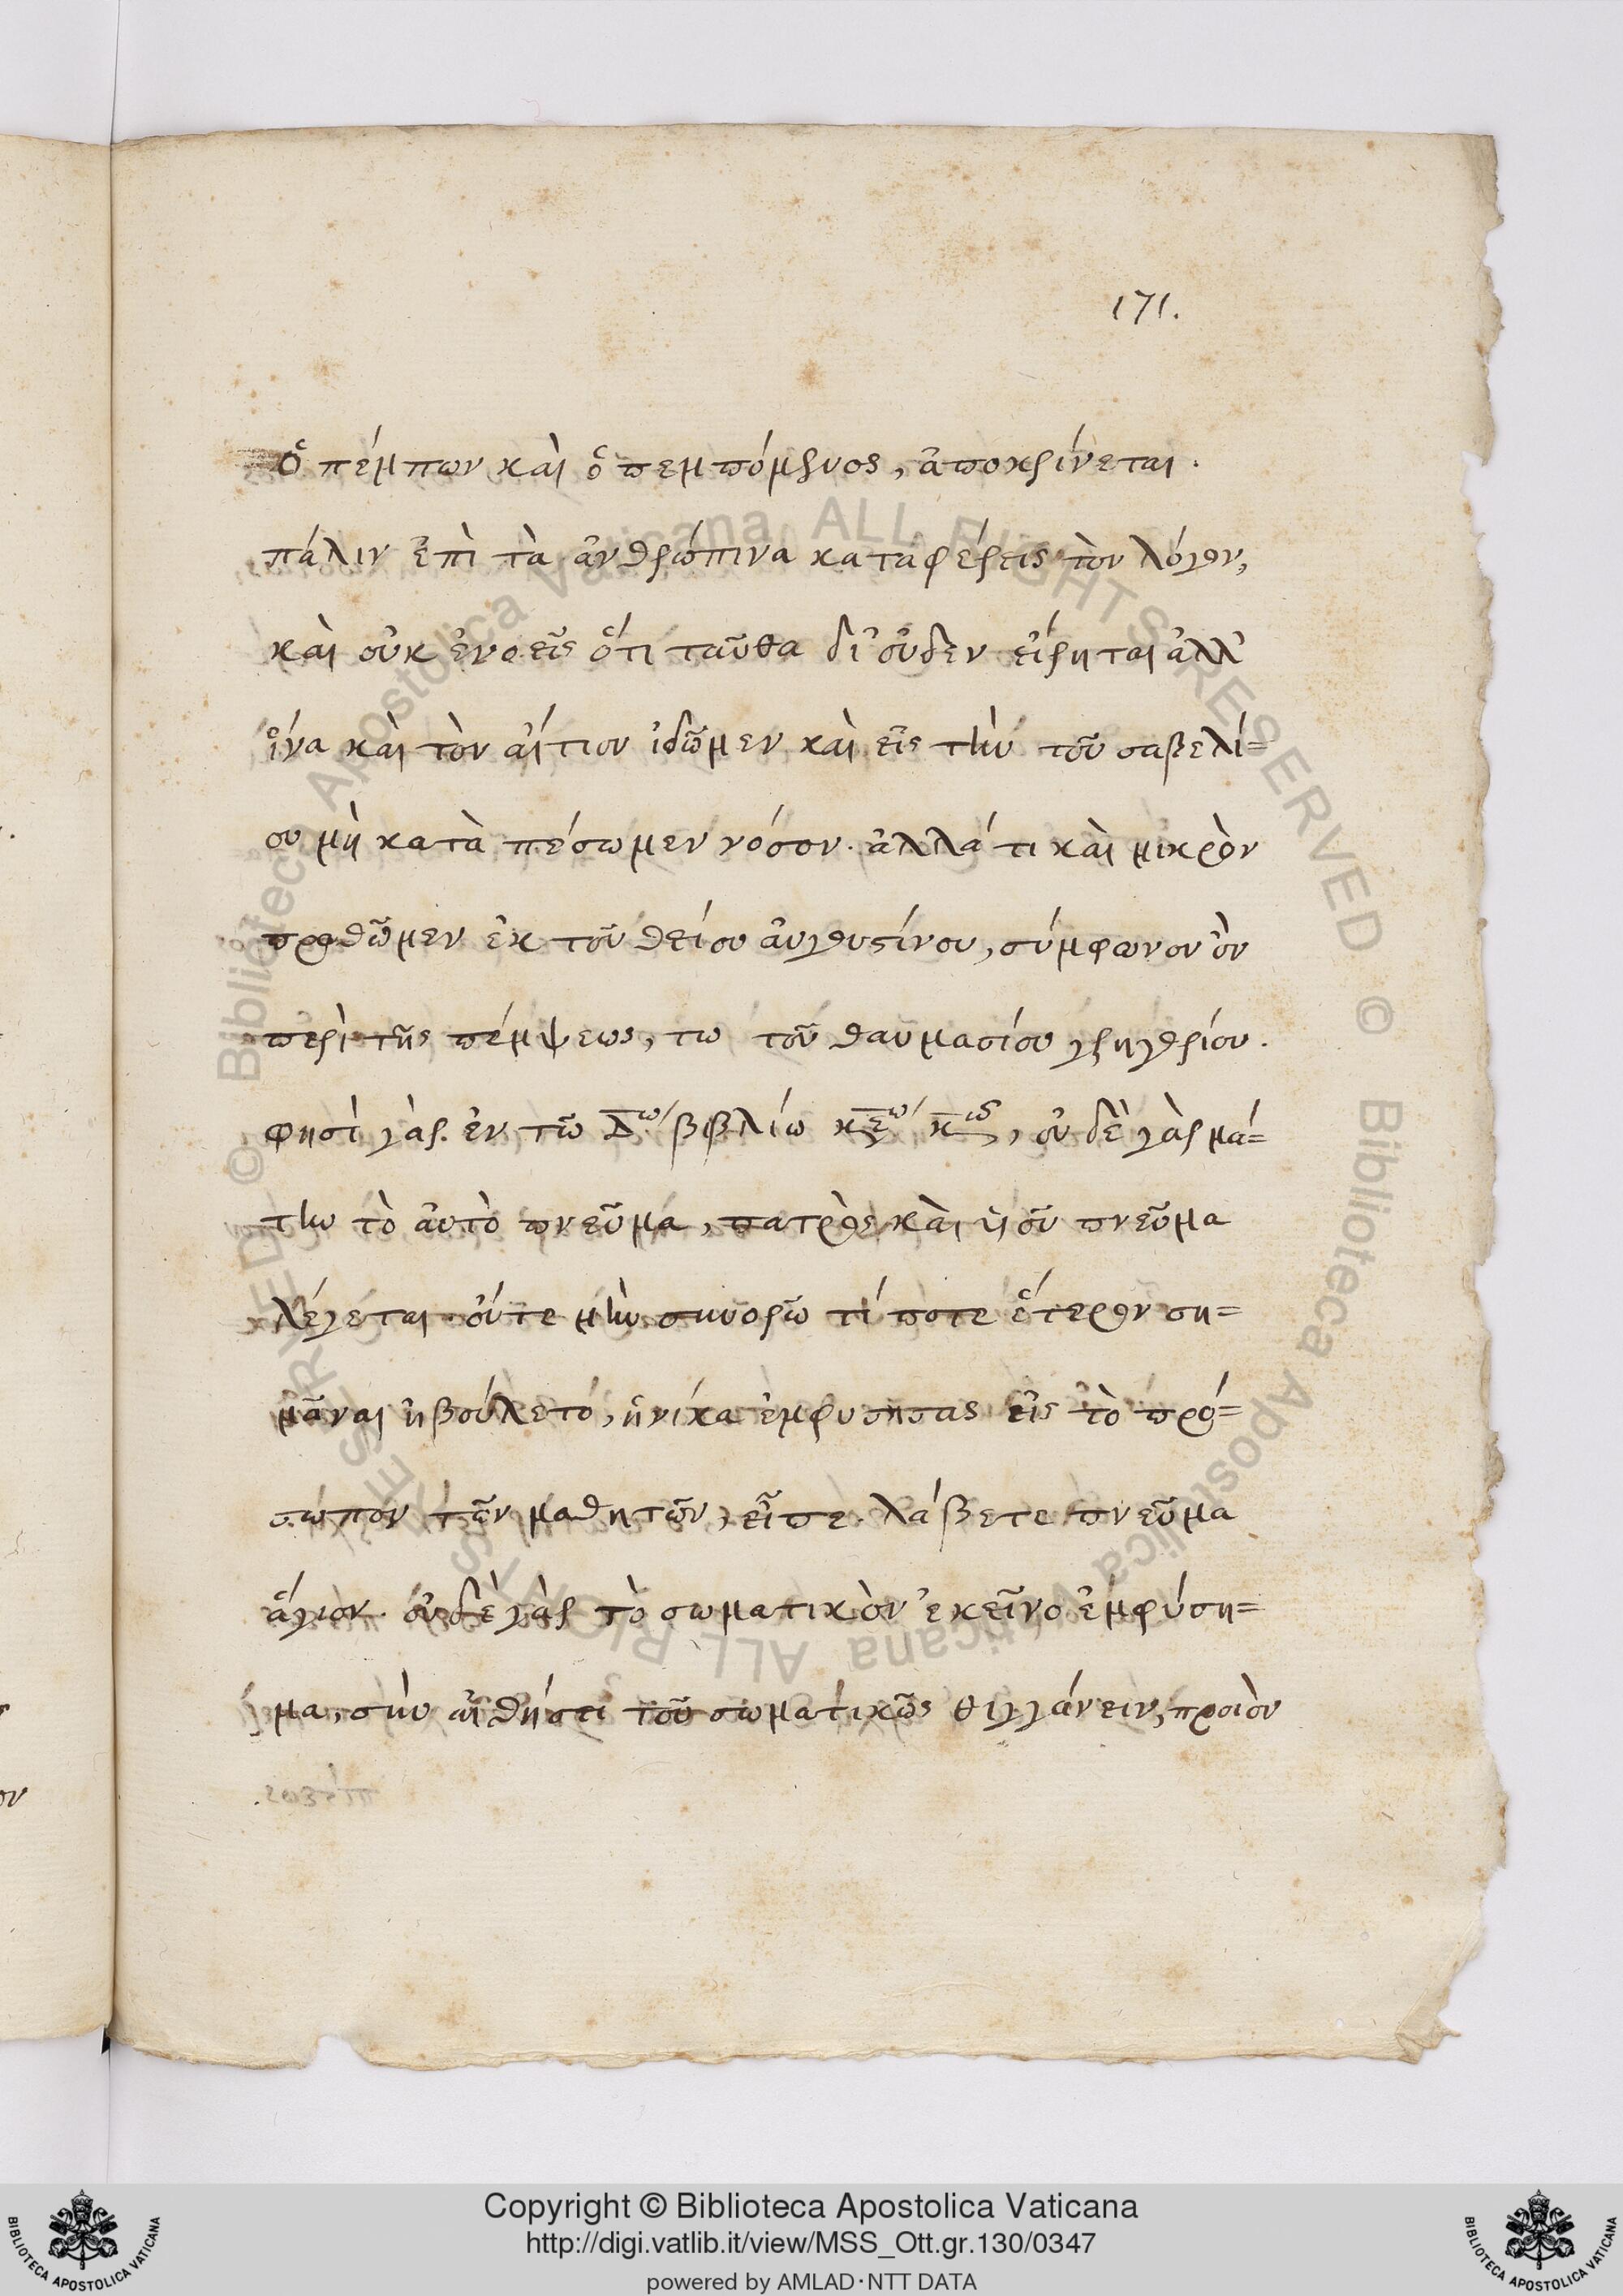 171.
Ὁ πέμπων καὶ ὁ πεμπόμενος, ἀποκρίνεται.
πάλιν ἐπὶ τὰ ἀνθρώπινα καταφέρεις τὸν λόγον,
καὶ οὐκ ἐνοεῖς ὅτι ταῦθα δι' οὐδεν εἴρηται ἀλλ'
ἵνα καὶ τὸν αἴτιον ἰδῶμεν καὶ εἰς τὴν τοῦ σαβελί=
ου μὴ κατὰ πέσωμεν νόσον. ἀλλά τι καὶ μικρὸν
προσθῶμεν ἐκ τοῦ θείου ἀυγουστίνου, σύμφωνον ὂν
περὶ τῆς πέμψεως, τω τοῦ θαυμασίου γρηγορίου.
φησὶ γὰρ. ἐν τῶ Δω βιβλίω κεω, οὐ δὲ γὰρ μά=
την τὸ ἀυτὸ πνεῦμα, πατρὸς καὶ ὑιοῦ πνεῦμα
λέγεται. ὅυτε μὴν συνορῶ τί ποτε ἕτερον ση=
μᾶναι ἠβούλετό, ἡνίκα ἐμφυσησας εἰς τὸ πρό=
σωπον τῶν μαθητῶν, εἶπε. λάβετε πνεῦμα
ἅγιον. οὐδὲ γὰρ τὸ σωματικὸν ἐκεῖνο ἐμφύση=
μα, σὺν αἰσθήσει τοῦ σωματικῶς θιγγάνειν, προιὸν
Copyright © Biblioteca Apostolica Vaticana
http://digi.vatlib.it/view/MSS_Ott.gr.130/0347
powered by AMLAD·NTT DATA
BIBLIOTECA APOSTOLICA VATICANA
BIBLIOTECA APOSTOLICA VATICANA
© Biblioteca Apostolica Vaticana ALL RIGHTS RESERVED © Biblioteca Apostolica Vaticana ALL RIGHTS RESERVED